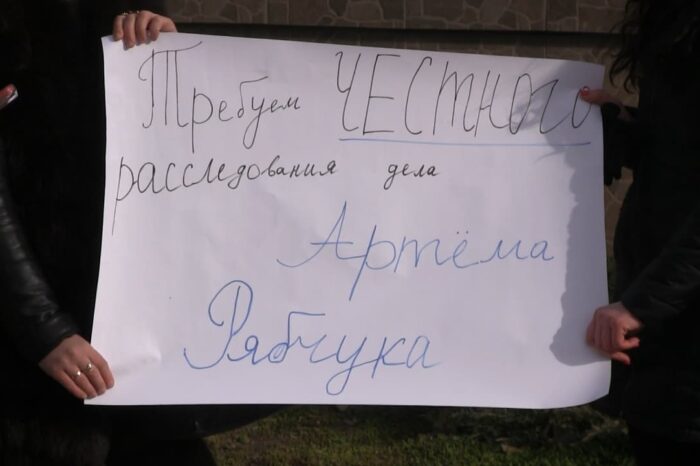 Требуем ЧЕСТНОГО
расследования дела
Артёма
Рябчука